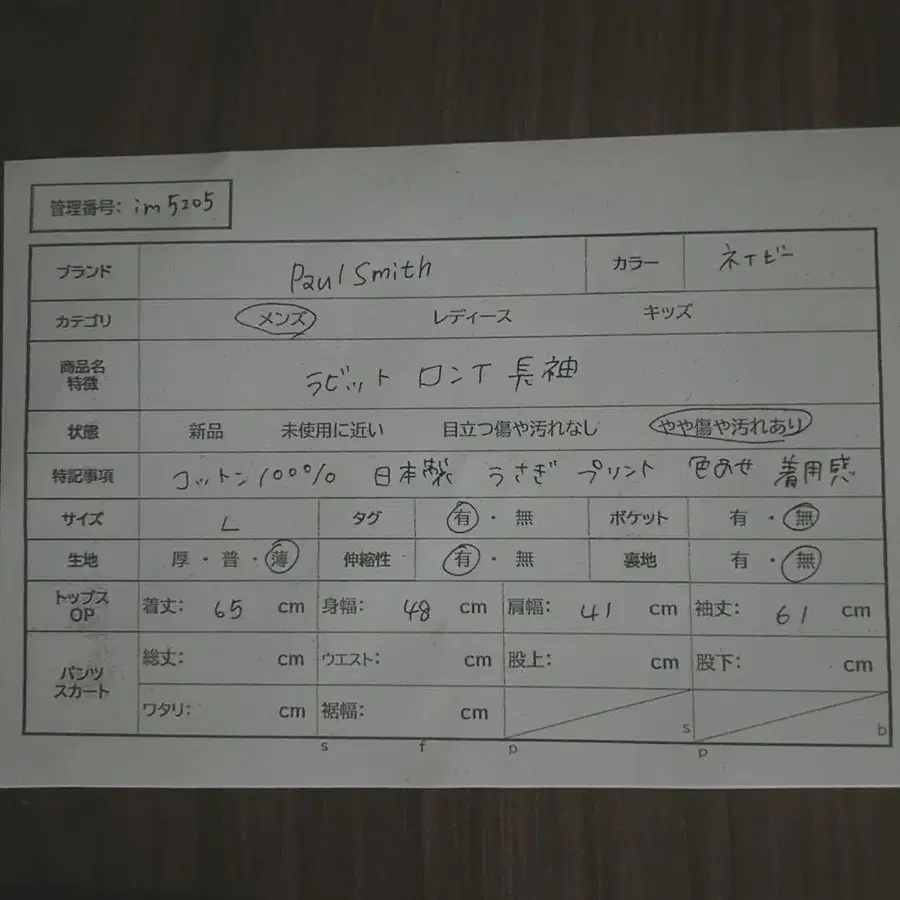 管理番号: im5205
ブランド Paul Smith カラー ネイビー
カテゴリ メンズ レディース キッズ
商品名 特徴 ラビット ロンT 長袖
状態 新品 未使用に近い 目立つ傷や汚れなし やや傷や汚れあり
特記事項 コットン100% 日本製 うさぎ プリント 色あせ 着用感
サイズ L タグ 有・無 ポケット 有・無
生地 厚・普・薄 伸縮性 有・無 裏地 有・無
トップス OP 着丈: 65 cm 身幅: 48 cm 肩幅: 41 cm 袖丈: 61 cm
パンツ スカート 総丈: cm ウエスト: cm 股上: cm 股下: cm
ワタリ: cm 裾幅: cm s b
s f p p